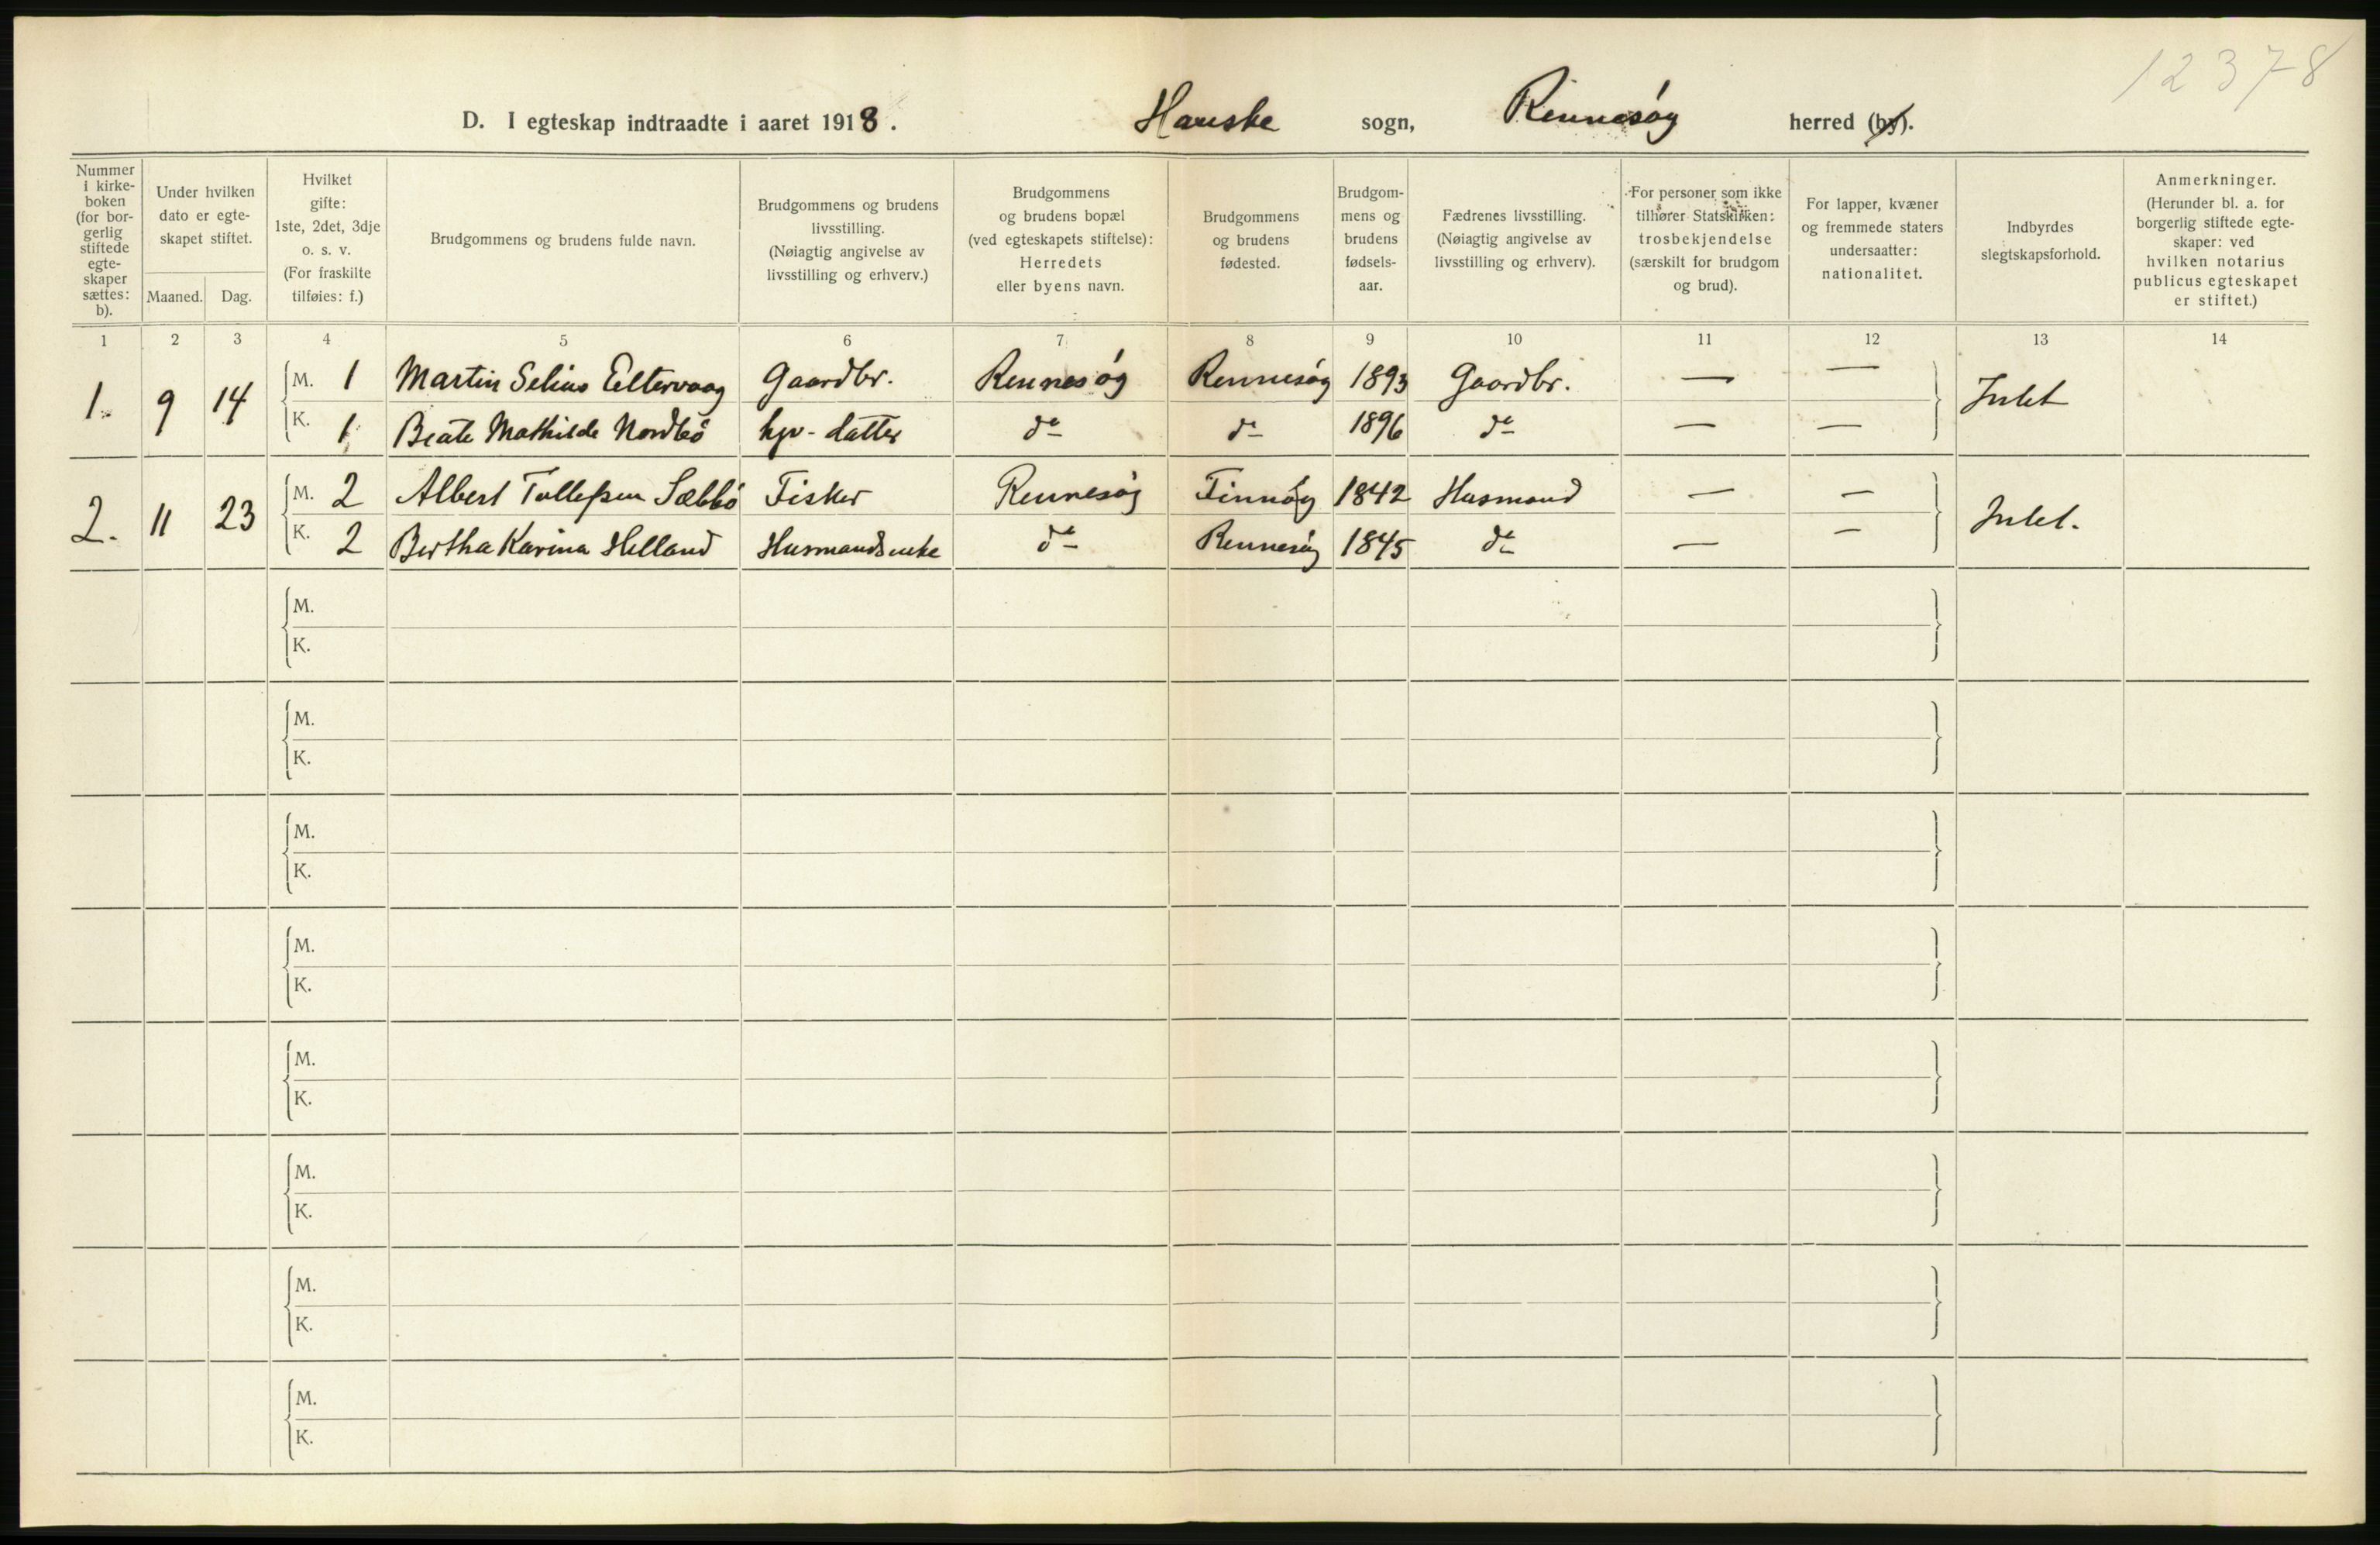 12378
D. I egteskap indtraadte i aaret 1918. Hauske sogn, Rennesöy herred (by).
Nummer i kirke-boken (for bor-gerlig stiftede egte-skaper sættes: b).
Under hvilken dato er egte-skapet stiftet.
Maaned. Dag.
Hvilket gifte: 1ste, 2det, 3dje o. s. v. (For fraskilte tilføies: f.)
Brudgommens og brudens fulde navn.
Brudgommens og brudens livsstilling. (Nøiagtig angivelse av livsstilling og erhverv.)
Brudgommens og brudens bopæl (ved egteskapets stiftelse): Herredets eller byens navn.
Brudgommens og brudens fødested.
Brudgom-mens og brudens fødsels-aar.
Fædrenes livsstilling. (Nøiagtig angivelse av livsstilling og erhverv).
For personer som ikke tilhører Statskirken: trosbekjendelse (særskilt for brudgom og brud).
For lapper, kvæner og fremmede staters undersaatter: nationalitet.
Indbyrdes slegtskapsforhold.
Anmerkninger. (Herunder bl. a. for borgerlig stiftede egte-skaper: ved hvilken notarius publicus egteskapet er stiftet.)
1 2 3 4 5 6 7 8 9 10 11 12 13 14
1. 9 14 M. 1 Martin Selius Eltervaag Gaardbr. Rennesöy Rennesöy 1893 Gaardbr. — — Intet
K. 1 Beate Mathilde Nordbö hjv-datter do do 1896 do — —
2. 11 23 M. 2 Albert Tollefsen Sæbbö Fisker Rennesöy Finnöy 1842 Husmand — — Intet.
K. 2 Bertha Karina Helland Husmandsenke do Rennesöy 1845 do — —
M.
K.
M.
K.
M.
K.
M.
K.
M.
K.
M.
K.
M.
K.
M.
K.